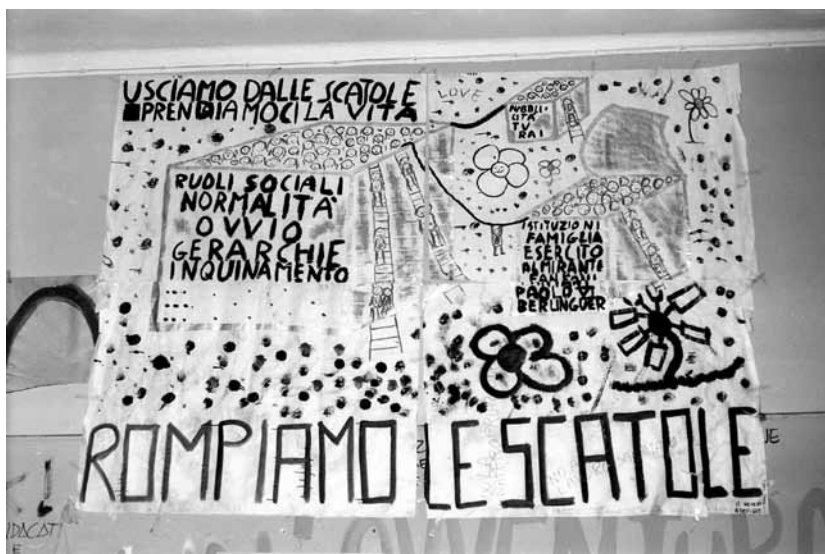 USCIAMO DALLE SCATOLE
PRENDIAMOCI LA VITA
LOVE
PUBBLI-
CITA'
TU
RAI
RUOLI SOCIALI
NORMALITA'
OVVIO
GERARCHIE
INQUINAMENTO
ISTITUZIONI
FAMIGLIA
ESERCITO
ALMIRANTE
FANFANI
PAOLO VI
BERLINGUER
ROMPIAMO LE SCATOLE
IDACAT
E
NE